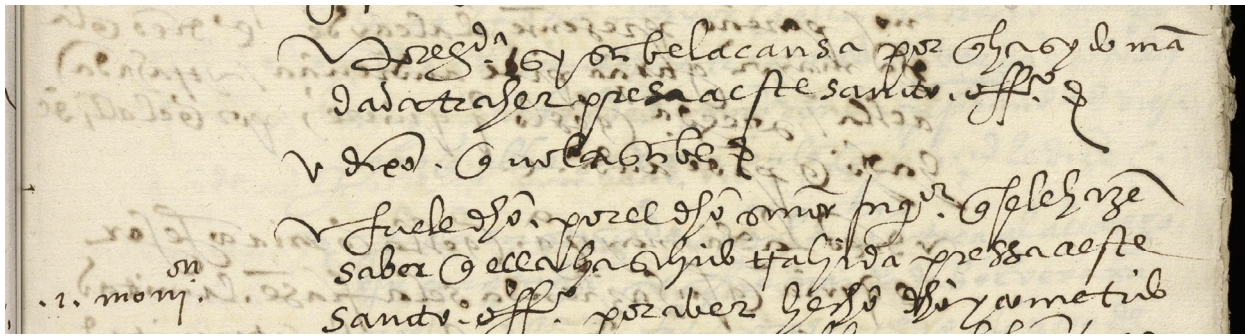 Pregda. si sabe la causa por q ha sydo mā
dada traher presa a este sancto. offo.
v dixo. q no la sabe
v fuele dho. por el dho señor Inqor. q se le haze
saber q ella ha sido trahida pressa a este
.1. monion.
sancto. offo. por aver hecho dho y cometido